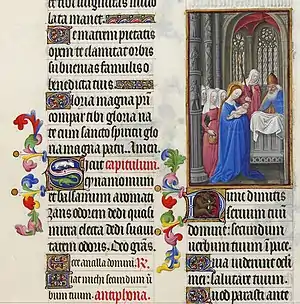 lata manet.
Te matrem pietatis
opem te clamitat orbis
subvenias famulis o
benedicta tuis
Gloria magna p
compar tibi gloria na
te cum sancto spiritu glo
ria magna patri. Amen.
Sicut capitulum.
cynamomum
et balsamum aromati
zans odorem dedi quasi
mirra electa dedi suavi
tatem odoris. Deo gras.
Ecce ancilla domini. R.
Fiat michi secundum v
bum tuum. antiphona.
Nunc dimittis
servum tuum
domine: secundum
verbum tuum i pace.
Quia viderunt oculi
mei: salutare tuum.
Quod parasti ante